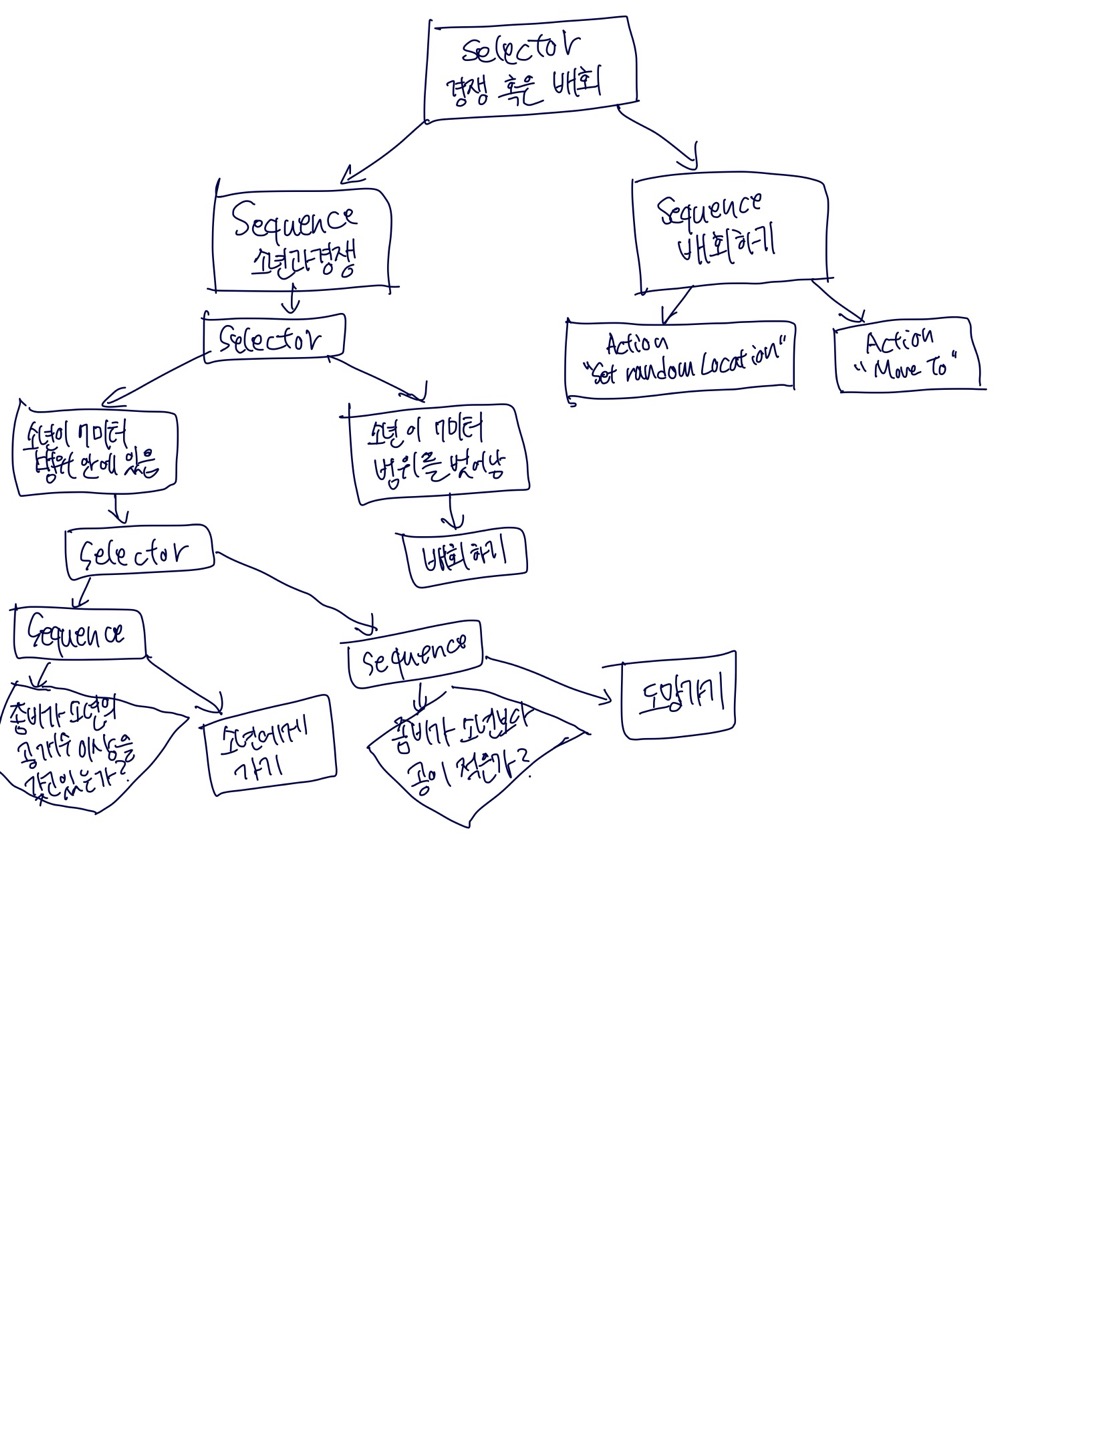 Selector
경쟁 혹은 배회
Sequence
소년과경쟁
Sequence
배회하기
Selector
Action
"Set random Location"
Action
"Move To"
소년이 7미터
범위 안에 있음
소년이 7미터
범위를 벗어남
Selector
배회하기
Sequence
Sequence
도망가기
좀비가 소년의
공개수 이상을
갖고있는가?
소년에게
가기
좀비가 소년보다
공이 적은가?